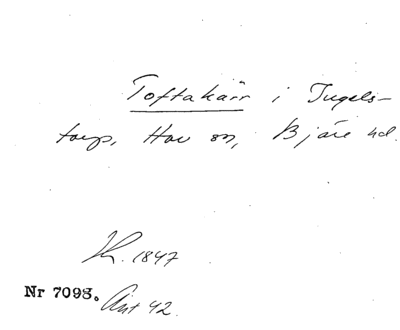 Toftakärr i Ingels-
torp, Hov sn, Bjäre hd.
1847
Nr 7098. Ant 42.